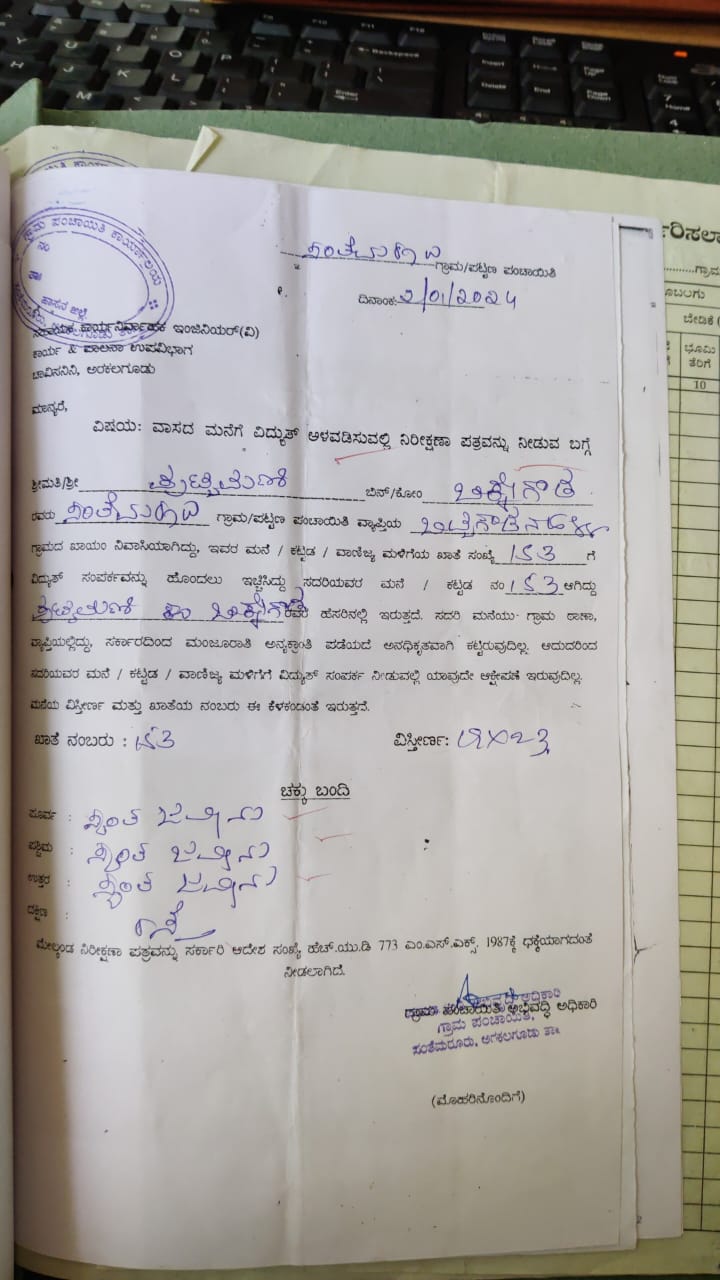 ಗ್ರಾಮ ಪಂಚಾಯಿತಿ ಕಾರ್ಯಾಲಯ
ಹಾಸನ ಜಿಲ್ಲೆ
ಗ್ರಾಮ/ಪಟ್ಟಣ ಪಂಚಾಯಿತಿ
ದಿನಾಂಕ: 2/01/2024
ಸಹಾಯಕ ಕಾರ್ಯನಿರ್ವಾಹಕ ಇಂಜಿನಿಯರ್(ವಿ)
ಕಾರ್ಯ & ಪಾಲನಾ ಉಪವಿಭಾಗ
ಚಾವಿಸನಿನಿ, ಅರಕಲಗೂಡು
ಮಾನ್ಯರೆ,
ವಿಷಯ: ವಾಸದ ಮನೆಗೆ ವಿದ್ಯುತ್ ಅಳವಡಿಸುವಲ್ಲಿ ನಿರೀಕ್ಷಣಾ ಪತ್ರವನ್ನು ನೀಡುವ ಬಗ್ಗೆ
ಶ್ರೀಮತಿ/ಶ್ರೀ ಬಿನ್/ಕೋಂ
ರವರು ಗ್ರಾಮ/ಪಟ್ಟಣ ಪಂಚಾಯಿತಿ ವ್ಯಾಪ್ತಿಯ
ಗ್ರಾಮದ ಖಾಯಂ ನಿವಾಸಿಯಾಗಿದ್ದು, ಇವರ ಮನೆ / ಕಟ್ಟಡ / ವಾಣಿಜ್ಯ ಮಳಿಗೆಯ ಖಾತೆ ಸಂಖ್ಯೆ ೧೯೩ ಗೆ
ವಿದ್ಯುತ್ ಸಂಪರ್ಕವನ್ನು ಹೊಂದಲು ಇಚ್ಛಿಸಿದ್ದು ಸದರಿಯವರ ಮನೆ / ಕಟ್ಟಡ ನಂ ೧೯೩ ಆಗಿದ್ದು
ರವರ ಹೆಸರಿನಲ್ಲಿ ಇರುತ್ತದೆ. ಸದರಿ ಮನೆಯು ಗ್ರಾಮ ಠಾಣಾ,
ವ್ಯಾಪ್ತಿಯಲ್ಲಿದ್ದು, ಸರ್ಕಾರದಿಂದ ಮಂಜೂರಾತಿ ಅನ್ಯಕ್ರಾಂತಿ ಪಡೆಯದೆ ಅನಧಿಕೃತವಾಗಿ ಕಟ್ಟಿರುವುದಿಲ್ಲ. ಆದುದರಿಂದ
ಸದರಿಯವರ ಮನೆ / ಕಟ್ಟಡ / ವಾಣಿಜ್ಯ ಮಳಿಗೆಗೆ ವಿದ್ಯುತ್ ಸಂಪರ್ಕ ನೀಡುವಲ್ಲಿ ಯಾವುದೇ ಆಕ್ಷೇಪಣೆ ಇರುವುದಿಲ್ಲ.
ಮನೆಯ ವಿಸ್ತೀರ್ಣ ಮತ್ತು ಖಾತೆಯ ನಂಬರು ಈ ಕೆಳಕಂಡಂತೆ ಇರುತ್ತದೆ.
ಖಾತೆ ನಂಬರು : ೧೯೩ ವಿಸ್ತೀರ್ಣ:
ಚಕ್ಕು ಬಂದಿ
ಪೂರ್ವ : ಸ್ವಂತ ಜಮೀನು
ಪಶ್ಚಿಮ : ಸ್ವಂತ ಜಮೀನು
ಉತ್ತರ : ಸ್ವಂತ ಜಮೀನು
ದಕ್ಷಿಣ : ರಸ್ತೆ
ಮೇಲ್ಕಂಡ ನಿರೀಕ್ಷಣಾ ಪತ್ರವನ್ನು ಸರ್ಕಾರಿ ಆದೇಶ ಸಂಖ್ಯೆ ಹೆಚ್.ಯು.ಡಿ 773 ಎಂ.ಎನ್.ಎಕ್ಸ್. 1987ಕ್ಕೆ ಧಕ್ಕೆಯಾಗದಂತೆ
ನೀಡಲಾಗಿದೆ.
ಗ್ರಾಮ ಪಂಚಾಯಿತಿ ಅಭಿವೃದ್ಧಿ ಅಧಿಕಾರಿ
ಗ್ರಾಮ ಪಂಚಾಯಿತಿ,
ಸಂತೆಮರೂರು, ಅರಕಲಗೂಡು ತಾ॥
(ಮೊಹರಿನೊಂದಿಗೆ)
ಭೂಮಿ
ತೆರಿಗೆ
10